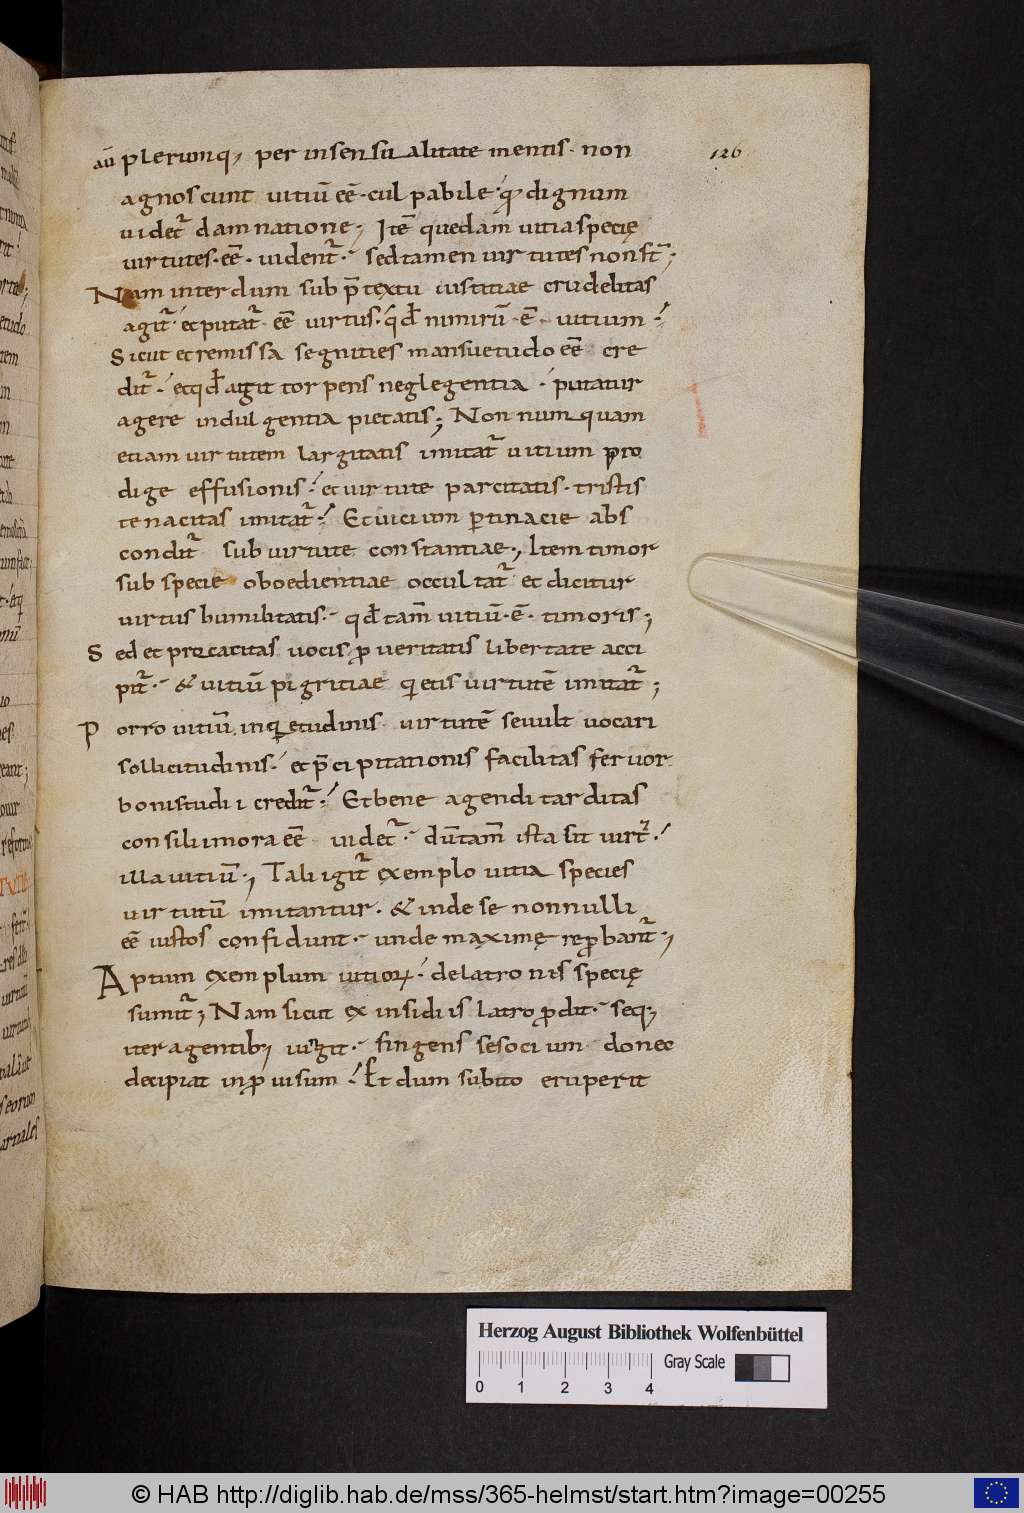 aū plerumq; per insensualitate mentis. non
126
agnoscunt uitiū eē. culpabile. qđ dignum
uidet̄ damnatione; Itē quedam uitia specię
uirtutes. eē. uident̄. sed tamen uirtutes non st̄;
Nam interdum sub p̄textu iustitiae crudelitas
agit̄. et putat̄. eē uirtus. qđ nimirū. ē. uitium.
Sicut et remissa segnities mansuetudo eē cre
dit̄. et qđ agit torpens neglegentia. putatur
agere indulgentia pietatis; Non numquam
etiam uirtutem largitatis imitat̄ uitium pro
dige effusionis. et uirtute parcitatis. tristis
tenacitas imitat̄. Et uicium ꝑtinacie abs
condit̄ sub uirtute constantiae; Item timor
sub specie oboedientiae occultat̄ et dicitur
uirtus humilitatis. qđ tam̄ uitiū. ē. timoris;
Sed et procacitas uocis ꝓ ueritatis libertate acci
pit̄. & uitiū pigritiae qietis uirtutē imitat̄;
Porro uitiū inqietudinis uirtutē se uult uocari
sollicitudinis. et p̄cipitationis facilitas feruor
boni studii credit̄. Et bene agendi tarditas
consilii mora eē uidet̄. dū tam̄ ista sit uirt᷒.
illa uitiū; Tali igit̄ exemplo uitia species
uirtutū imitantur. & inde se nonnulli
eē iustos confidunt. unde maxime reꝓbant̄;
Aptum exemplum uitioꝝ. de latronis specię
sumit̄; Nam sicut ex insidiis latro ꝓdit. seq;
iter agentib; iungit. fingens se socium donec
decipiat inꝓuisum. Et dum subito eruperit
Herzog August Bibliothek Wolfenbüttel
Gray Scale
0 1 2 3 4
© HAB http://diglib.hab.de/mss/365-helmst/start.htm?image=00255